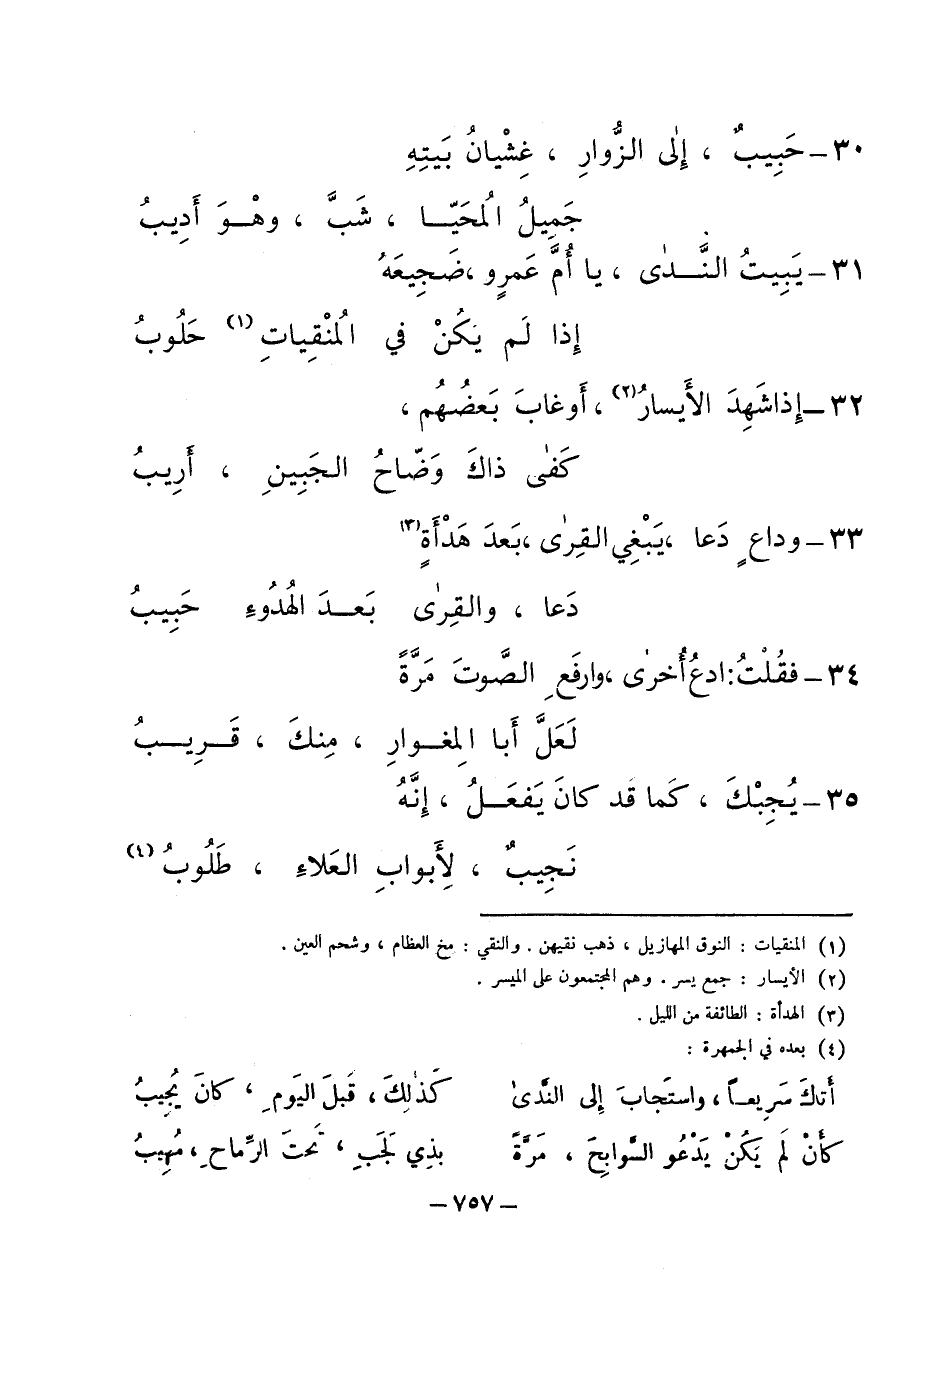 ٣٠ــ حَبِيبٌ ، إِلٰى الزُّوارِ ، غِشْيانُ بَيتِهِ
جَمِيلُ المُحَيّا ، شَبَّ ، وهْوَ أَدِيبُ
٣١ــ يَبِيتُ النَّدٰى ، يا أُمَّ عَمرٍو ، ضَجِيعَهُ
إِذا لَم يَكُنْ في المُنْقِياتِ (١) حَلُوبُ
٣٢ــ إِذا شَهِدَ الأَيسارُ (٢) ، أَوغابَ بَعضُهُم ،
كَفٰى ذاكَ وَضّاحُ الجَبِينِ ، أَرِيبُ
٣٣ــ وداعٍ دَعا ، يَبْغِي القِرٰى ، بَعدَ هَدْأَةٍ (٣)
دَعا ، والقِرٰى بَعدَ الهُدُوءِ حَبِيبُ
٣٤ــ فقُلْتُ : ادعُ أُخرٰى ، وارفَعِ الصَّوتَ مَرَّةً
لَعَلَّ أَبا المِغوارِ ، مِنكَ ، قَرِيبُ
٣٥ــ يُجِبْكَ ، كَما قَد كانَ يَفعَلُ ، إِنَّهُ
نَجِيبٌ ، لِأَبوابِ العَلاءِ ، طَلُوبُ (٤)
(١) المنقيات : النوق المهازيل ، ذهب نقيهن . والنقي : مخ العظام ، وشحم العين .
(٢) الأيسار : جمع يسر . وهم المجتمعون على الميسر .
(٣) الهدأة : الطائفة من الليل .
(٤) بعده في الجمهرة :
أَتاكَ سَرِيعاً ، واستَجابَ إِلى النَّدىٰ كَذٰلِكَ ، قَبلَ اليَومِ ، كانَ يُجِيبُ
كأَنْ لَم يَكُنْ يَدْعُو السَّوابِحَ ، مَرَّةً بِذِي لَجَبٍ ، تَحتَ الرِّماحِ ، مُهِيبُ
— ٧٥٧ —